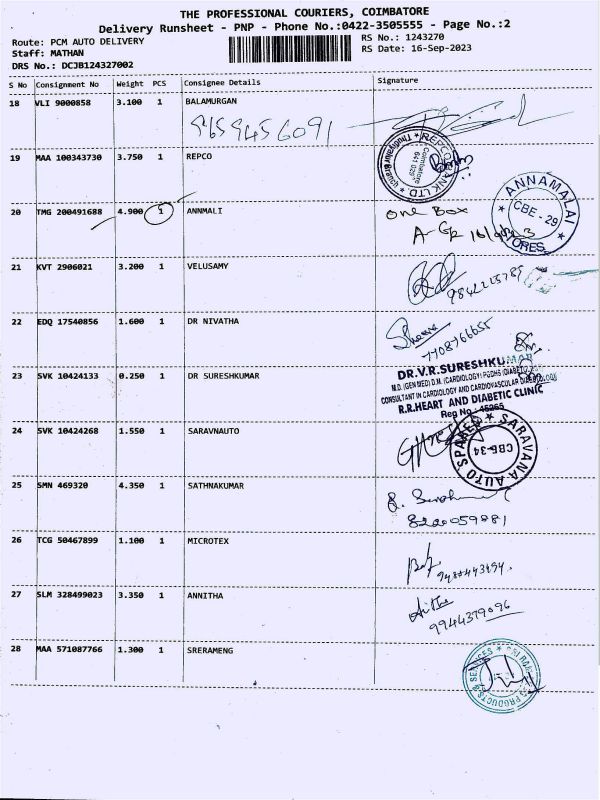 THE PROFESSIONAL COURIERS, COIMBATORE
Delivery Runsheet - PNP - Phone No.:0422-3505555 - Page No.:2
Route: PCM AUTO DELIVERY
Staff: MATHAN
DRS No.: DCJB124327002
RS No.: 1243270
RS Date: 16-Sep-2023
S No Consignment No Weight PCS Consignee Details Signature
18 VLI 9000858 3.100 1 BALAMURGAN
9659456091
19 MAA 100343730 3.750 1 REPCO
REPCO BANK LTD
Coimbatore
641 029
20 TMG 200491688 4.900 1 ANNMALI
One Box
ANNAMALAI
CBE - 29
STORES
21 KVT 2906021 3.200 1 VELUSAMY
22 EDQ 17540856 1.600 1 DR NIVATHA
7708766655
23 SVK 10424133 0.250 1 DR SURESHKUMAR
DR.V.R.SURESHKUMAR
M.D. (GEN MED) D.M. (CARDIOLOGY) PGDHS (DIABETOLOGY)
CONSULTANT IN CARDIOLOGY AND CARDIOVASCULAR DIABETOLOGY
R.R.HEART AND DIABETIC CLINIC
Reg No : 45265
24 SVK 10424268 1.550 1 SARAVNAUTO
SARAVANA AUTO SPARES
CBE-34
25 SMN 469320 4.350 1 SATHNAKUMAR
26 TCG 50467899 1.100 1 MICROTEX
27 SLM 328499023 3.350 1 ANNITHA
9944379096
28 MAA 571087766 1.300 1 SRERAMENG